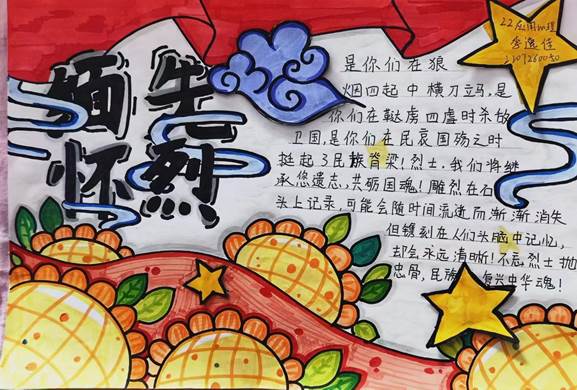 缅怀先烈
22应用心理
李逸佳
是你们在狼
烟四起中横刀立马,是
你们在鞑虏四虐时杀敌
卫国,是你们在民哀国殇之时
挺起了民族脊梁!烈士,我们将继
承您遗志,共砺国魂!雕烈在石
头上记录,可能会随时间流逝而渐渐消失
但镌刻在人们头脑中记忆,
却会永远清晰!不忘烈士抛
忠骨,民族复兴中华魂!